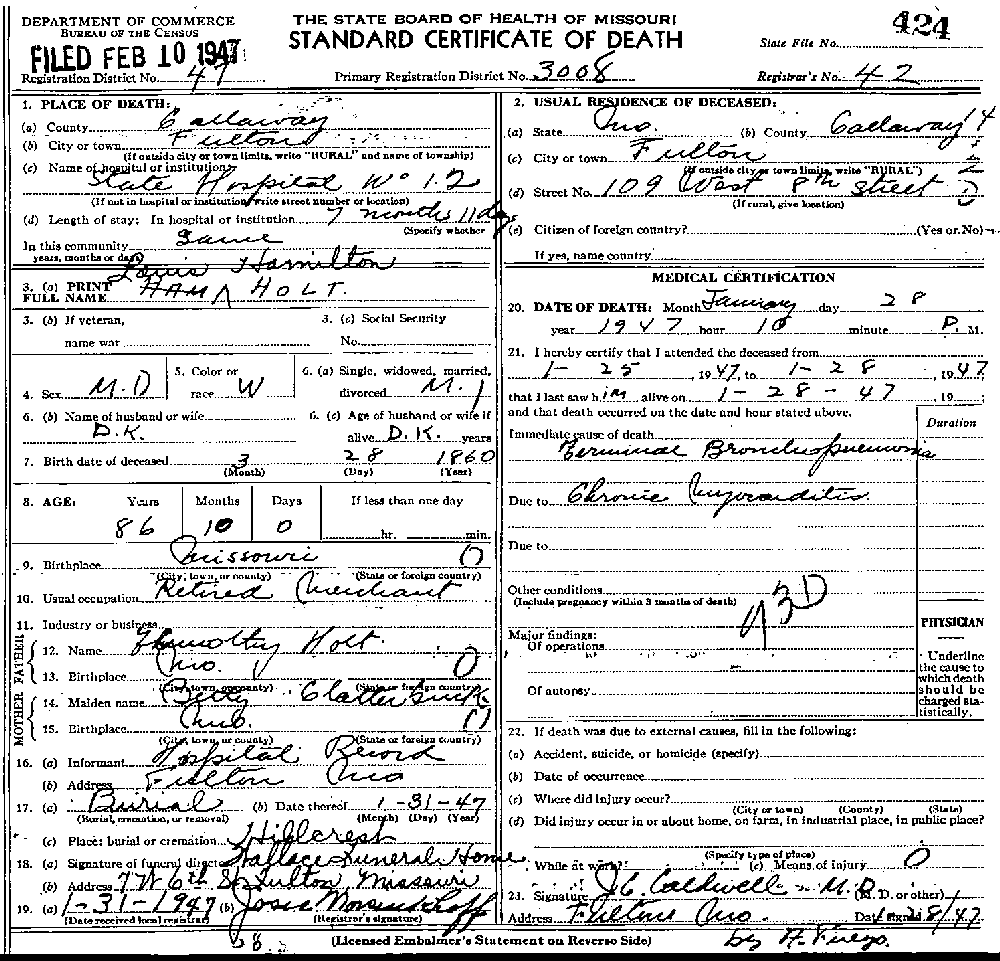 DEPARTMENT OF COMMERCE
BUREAU OF THE CENSUS
FILED FEB 10 1947
Registration District No. 47
THE STATE BOARD OF HEALTH OF MISSOURI
STANDARD CERTIFICATE OF DEATH
Primary Registration District No. 3008
424
State File No.
Registrar's No. 42
1. PLACE OF DEATH:
(a) County Callaway
(b) City or town Fulton
(If outside city or town limits, write "RURAL" and name of township)
(c) Name of hospital or institution:
State Hospital No 1.2
(If not in hospital or institution, write street number or location)
(d) Length of stay: In hospital or institution 7 months 11 days
(Specify whether
In this community Same
years, months or days)
Louis Hamilton
3. (a) PRINT FULL NAME HAM HOLT.
3. (b) If veteran,
name war
3. (c) Social Security
No.
4. Sex M.
5. Color or race W
6. (a) Single, widowed, married,
divorced M.
6. (b) Name of husband or wife
D.K.
6. (c) Age of husband or wife if
alive D.K. years
7. Birth date of deceased 3 28 1860
(Month) (Day) (Year)
8. AGE: Years Months Days If less than one day
86 10 0 hr. min.
9. Birthplace Missouri
(City, town, or county) (State or foreign country)
10. Usual occupation Retired Merchant
11. Industry or business
FATHER
12. Name Holt
13. Birthplace Mo.
(City, town, or county) (State or foreign country)
MOTHER
14. Maiden name Betty
15. Birthplace Mo.
(City, town, or county) (State or foreign country)
16. (a) Informant Hospital Record
(b) Address Fulton Mo
17. (a) Burial (b) Date thereof 1-31-47
(Burial, cremation, or removal) (Month) (Day) (Year)
(c) Place: burial or cremation Hillcrest
18. (a) Signature of funeral director Wallace Funeral Home
(b) Address 7 W 6th St Fulton Missouri
19. (a) 1-31-1947 (b) Josie
(Date received local registrar) (Registrar's signature)
2. USUAL RESIDENCE OF DECEASED:
(a) State Mo. (b) County Callaway 14
(c) City or town Fulton
(If outside city or town limits, write "RURAL")
(d) Street No. 109 West 8th street
(If rural, give location)
(e) Citizen of foreign country? (Yes or No)
If yes, name country
MEDICAL CERTIFICATION
20. DATE OF DEATH: Month January day 28
year 1947 hour 10 minute P. M.
21. I hereby certify that I attended the deceased from
1-25, 1947, to 1-28, 1947
that I last saw him alive on 1-28-47, 19 ;
and that death occurred on the date and hour stated above.
Duration
Immediate cause of death
Terminal Bronchopneumonia
Due to Chronic Myocarditis
Due to
Other conditions
(Include pregnancy within 3 months of death)
93D
Major findings:
Of operations
Of autopsy
PHYSICIAN
Underline
the cause to
which death
should be
charged sta-
tistically.
22. If death was due to external causes, fill in the following:
(a) Accident, suicide, or homicide (specify)
(b) Date of occurrence
(c) Where did injury occur?
(City or town) (County) (State)
(d) Did injury occur in or about home, on farm, in industrial place, in public place?
(Specify type of place)
While at work? (e) Means of injury 0
23. Signature J.C. Caldwell M.D. (M. D. or other)
Address Fulton Mo. Date signed 1/28/47
(Licensed Embalmer's Statement on Reverse Side)